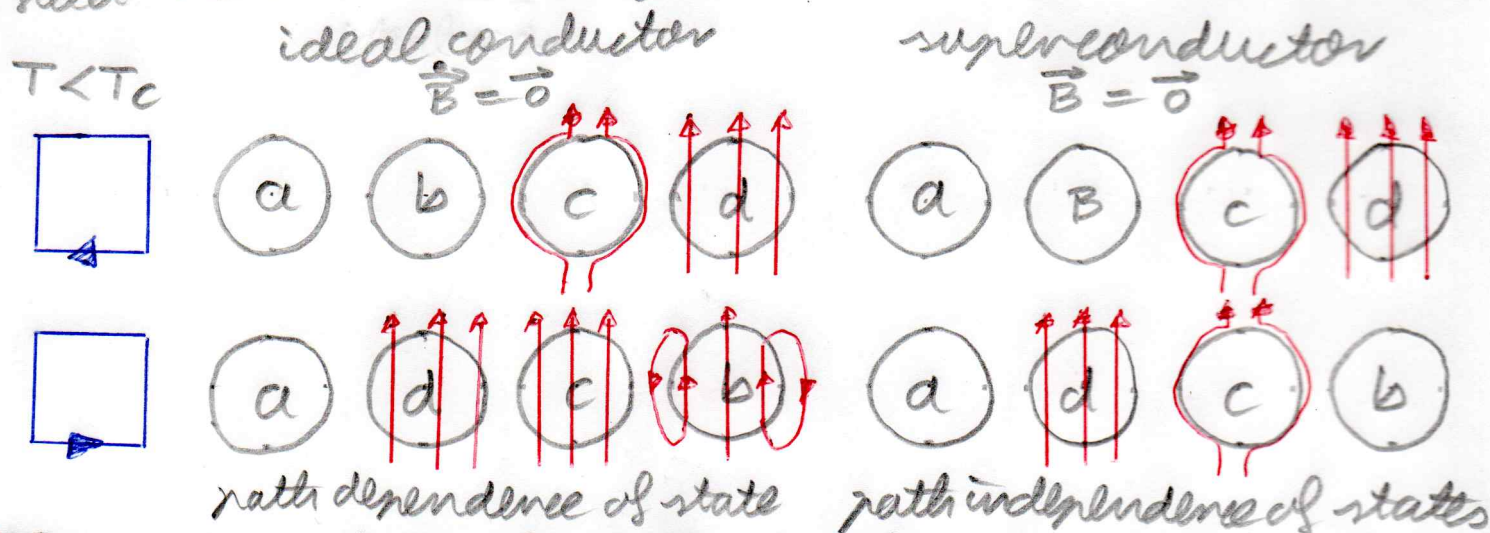 ideal conductor superconductor
T<Tc $\dot{\vec{B}} = \vec{0}$ $\vec{B} = \vec{0}$
a b c d a B c d
a d c b a d c b
path dependence of state path independence of states